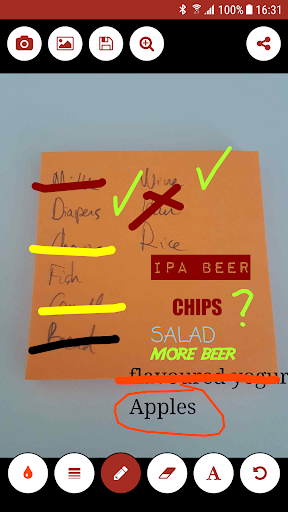 100% 16:31
Milk
Wine
Diapers
Rice
Fish
Bread
IPA BEER
CHIPS ?
SALAD
MORE BEER
flavoured yogur
Apples
A